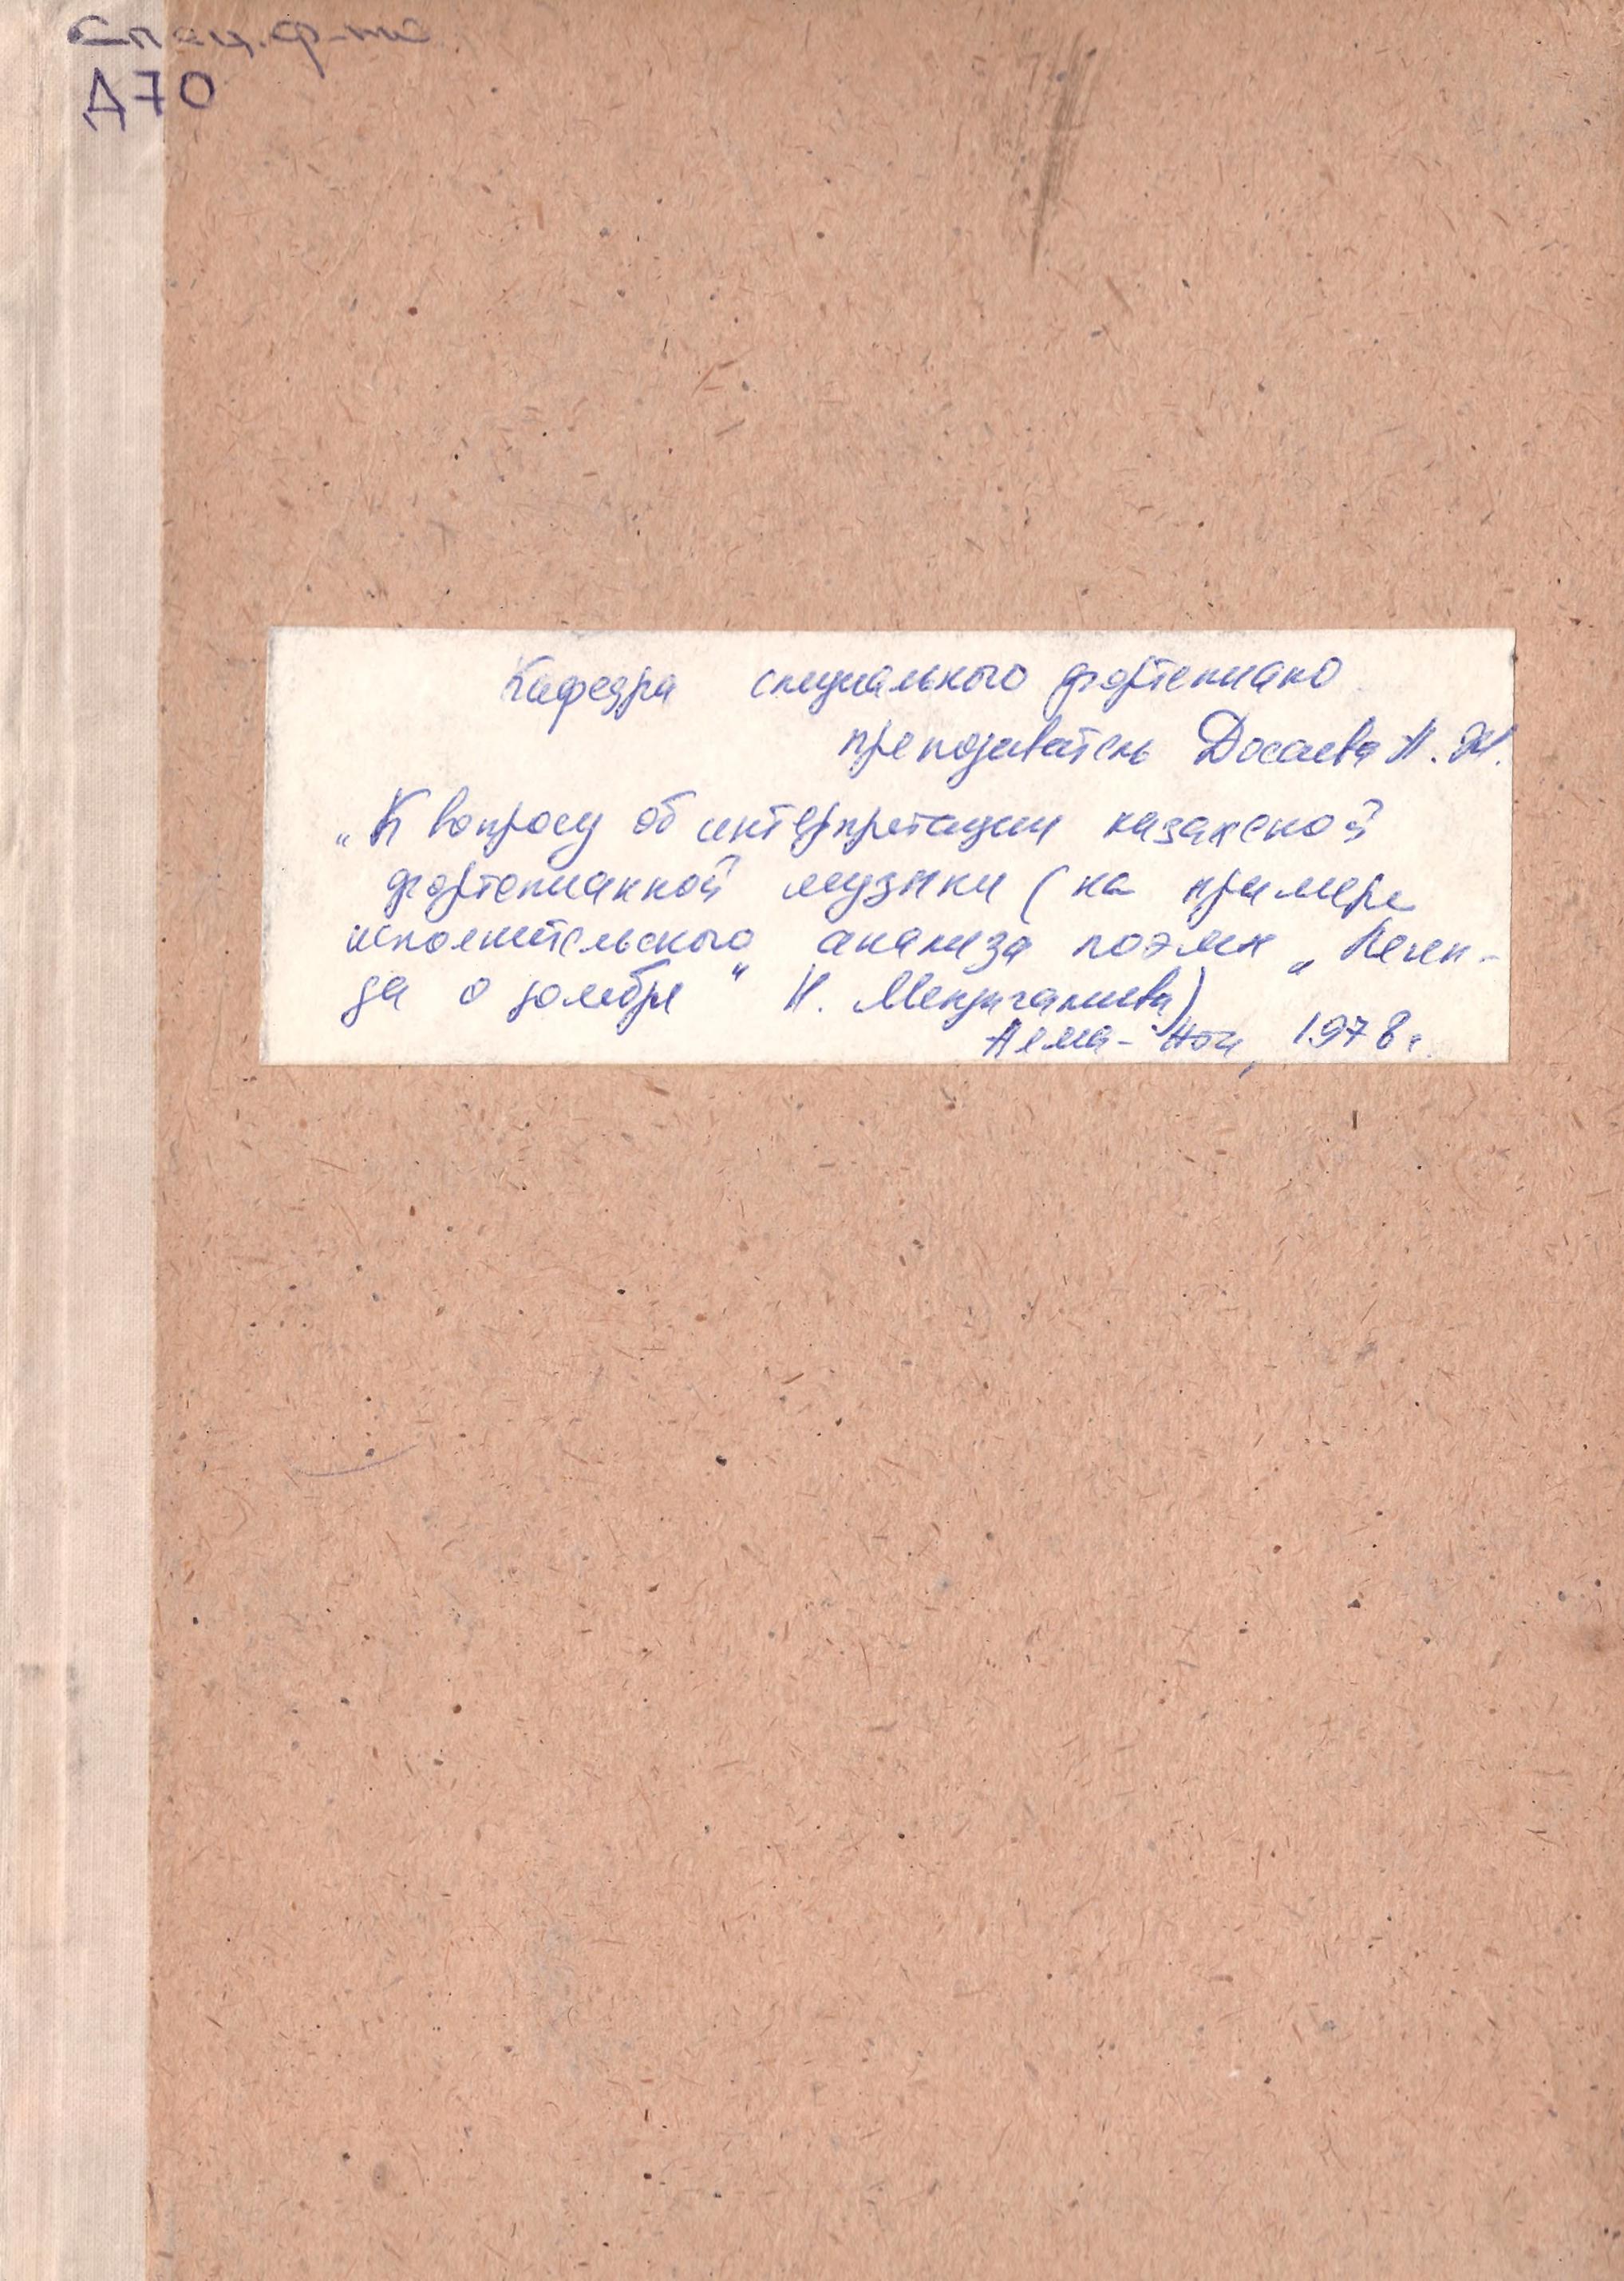 Спец. ф-но
Д70
Кафедра специального фортепиано
преподаватель Досаева Н. Ж.
„К вопросу об интерпретации казахской
фортепианной музыки (на примере
исполнительского анализа поэмы „Леген-
да о домбре" Н. Мендыгалиева)
Алма-Ата, 1978 г.